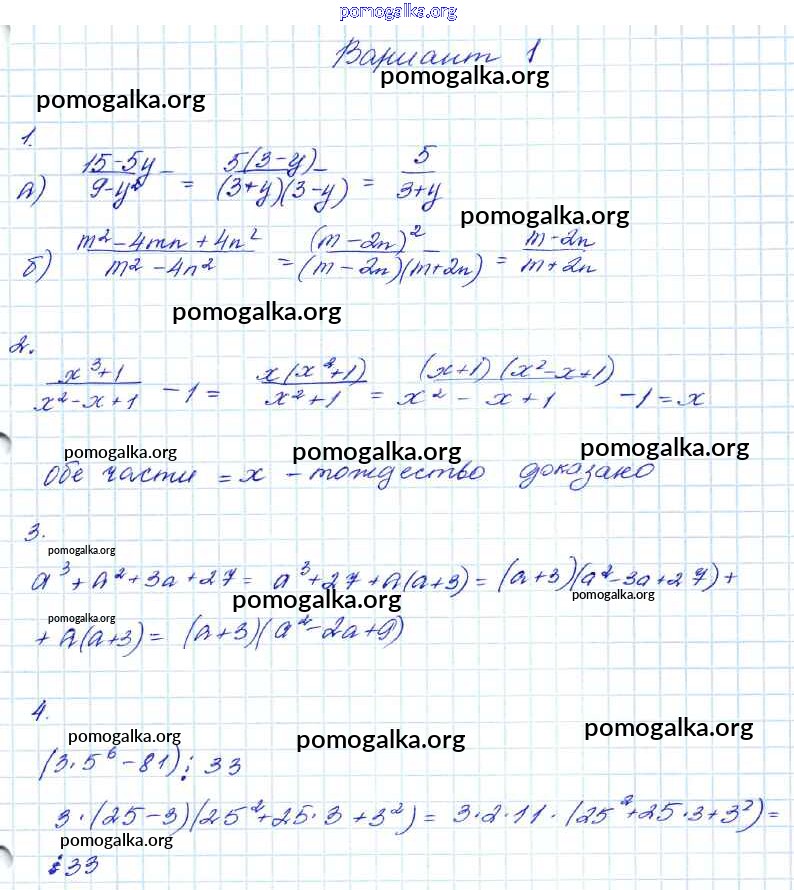 pomogalka.org
Вариант 1
pomogalka.org
pomogalka.org
1.
а) (15-5y)/(9-y²) = 5(3-y)/((3+y)(3-y)) = 5/(3+y)
pomogalka.org
б) (m²-4mn+4n²)/(m²-4n²) = (m-2n)²/((m-2n)(m+2n)) = (m-2n)/(m+2n)
pomogalka.org
2.
(x³+1)/(x²-x+1) -1 = x(x²+1)/(x²+1) = (x+1)(x²-x+1)/(x²-x+1) -1=x
pomogalka.org pomogalka.org pomogalka.org
Обе части = x - тождество доказано
3.
pomogalka.org
a³+a²+3a+27= a³+27+a(a+3)= (a+3)(a²-3a+27)+
pomogalka.org pomogalka.org pomogalka.org
+ a(a+3)= (a+3)(a²-2a+9)
4.
pomogalka.org pomogalka.org pomogalka.org
(3·5⁶-81)⋮33
3·(25-3)(25²+25·3+3²)= 3·2·11·(25²+25·3+3²)=
pomogalka.org
⋮33